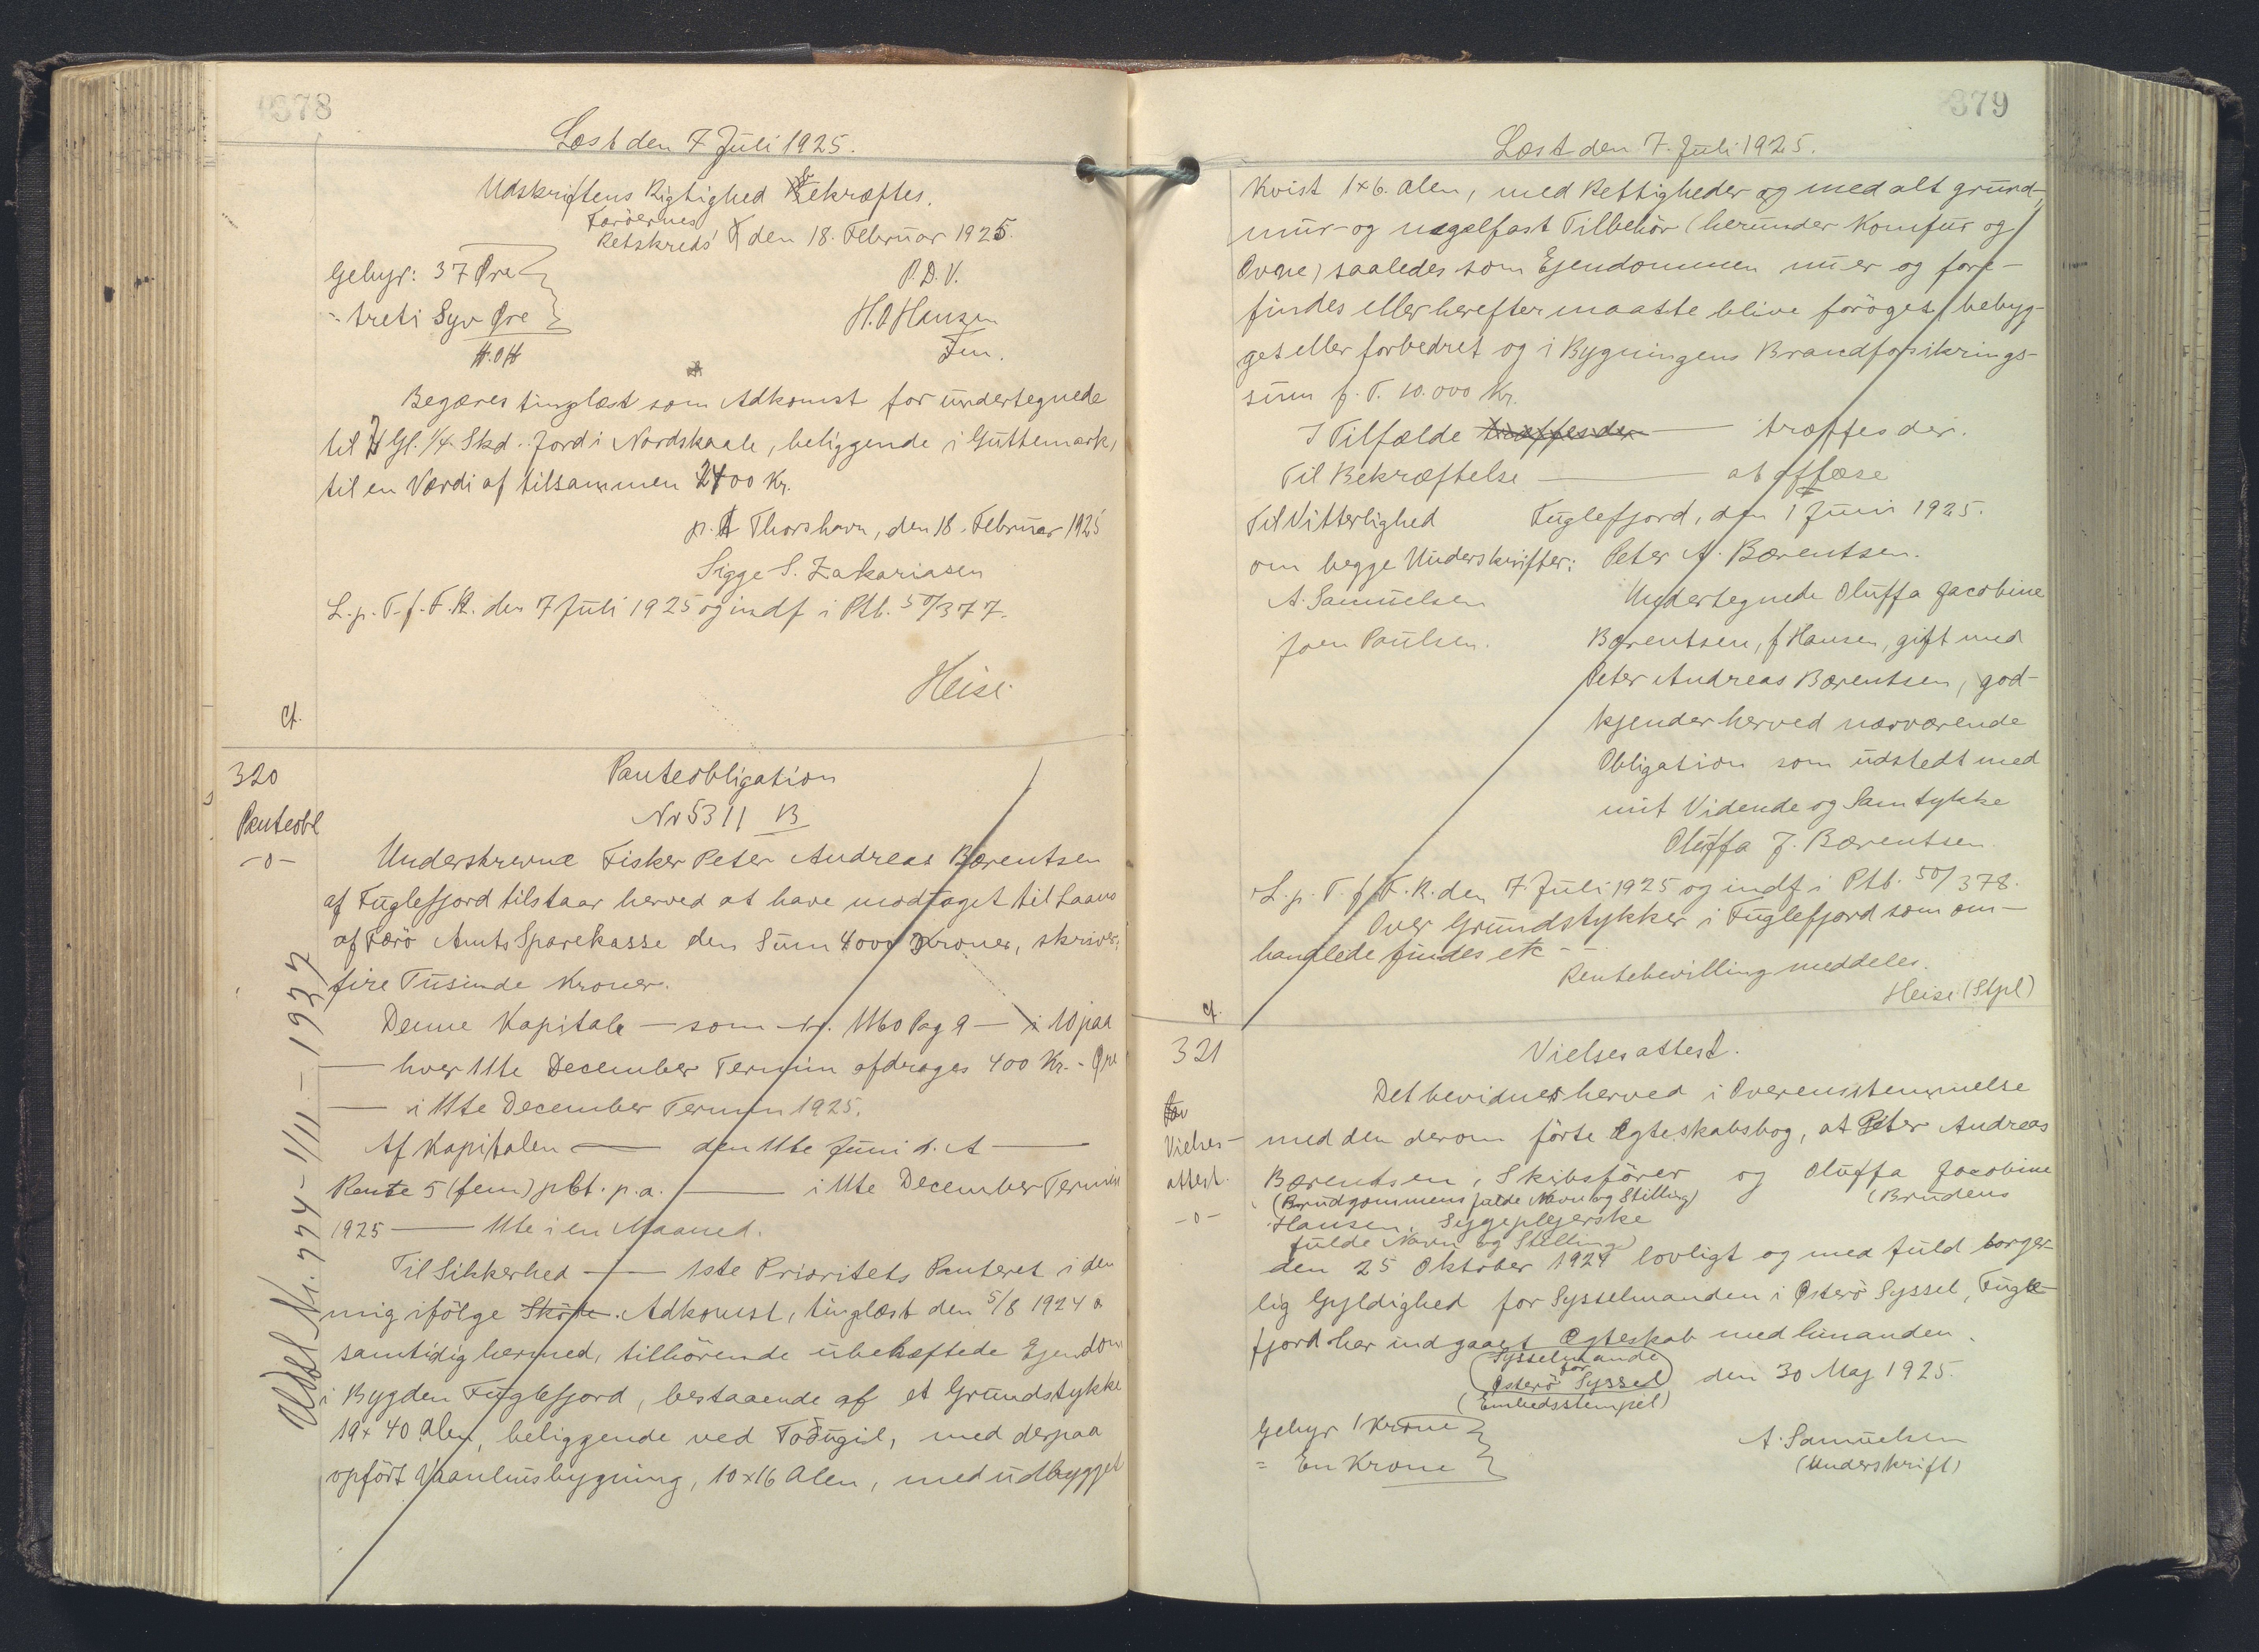 378
Læst den 7 Juli 1925.
Udskriftens Rigtighed bekræftes.
Færøernes
Retskreds' d den 18. Februar 1925.
Gebyr: 37 Øre
P.D.V.
= treti Syv Øre
H.O Hansen
H.OH
Fm.
Begæres tinglæst som Adkomst for undertegnede
til 7 Gl. 1/4 Skd. Jord i Nordskaale, beliggende i Guttemark,
til en Værdi af tilsammen 2400 Kr.
p.t Thorshavn, den 18. Februar 1925
Sigge S. Zakariasen
L.p. T. f. F.R. den 7 Juli 1925 og indf i Ptb. 50/377.
Heise
Ct.
320
Panteobl
-o-
Panteobligation
Nr 5311 B
Underskrevne Fisker Peter Andreas Bærentsen
af Fuglefjord tilstaar herved at have modtaget til Laans
af Færø Amts Sparekasse den Sum 4000 Kroner, skriver:
fire Tusinde Kroner.
Denne Kapitale — som Nr. 1160 Pag 9 — i 10 paa
— hver 11te December Termin afdrages 400 Kr. - Øre
— i 11te December Termin 1925.
Af Kapitalen — den 11te Juni d. A —
Rente 5 (fem) pCt. p.a. — i 11te December Termin
1925 — 11te i en Maaned.
Til Sikkerhed — 1ste Prioritets Panteret i den
mig ifölge Sköde. Adkomst, tinglæst den 5/8 1924 &
samtidig hermed, tilhörende ubehæftede Ejendom
i Bygden Fuglefjord, bestaaende af et Grundstykke
19 x 40 Alen, beliggende ved Todugil, med derpaa
opfört Vaanhusbygning, 10x16 Alen, med udbygget
Udsl. Nr. 774 - 1/11 - 1927
379
Læst den 7. Juli 1925.
Kvist 1x6. Alen, med Rettigheder og med alt grund-,
mur- og nagelfast Tilbehör (herunder Komfur og
Ovne) saaledes som Ejendommen nu er og fore-
findes eller herefter maatte blive foröget, bebyg-
get eller forbedret og i Bygningens Brandforsikrings-
sum p. T. 10.000 Kr.
I Tilfælde træffes der — træffes der.
Til Bekræftelse — at aflæse
Til Vitterlighed
Fuglefjord, den 1 Juni 1925.
om begge Underskrifter:
Peter A. Bærentsen.
A. Samuelsen
Undertegnede Oluffa Jacobine
Joen Poulsen.
Bærentsen, f Hansen, gift med
Peter Andreas Bærentsen, god-
kjender herved nærværende
Obligation som udstedt med
mit Vidende og Samtykke
Oluffa J. Bærentsen
L. p. T. f F. R. den 7 Juli 1925 og indf. i Ptb. 50/378.
Over Grundstykker i Fuglefjord som om-
handlede findes etc -
Rentebevilling meddeles.
Heise (Stpl)
Ct.
321
Vielses-
attest.
-o-
Vielsesattest.
Det bevidnes herved i Overensstemmelse
med den derom förte Ægteskabsbog, at Peter Andreas
Bærentsen, Skibsförer og Oluffa Jacobine
(Brudgommens fulde Navn og Stilling) (Brudens
Hansen, Sygeplejerske
fulde Navn og Stilling)
den 25 Oktober 1924 lovligt og med fuld borger-
lig Gyldighed for Sysselmanden i Österö Syssel, Fugle-
fjord har indgaaet Ægteskab med hinanden.
Sysselmande
for
Österö Syssel
den 30 Maj 1925.
(Embedsstempel)
Gebyr 1 Krone
A. Samuelsen
= En Krone
(Underskrift)